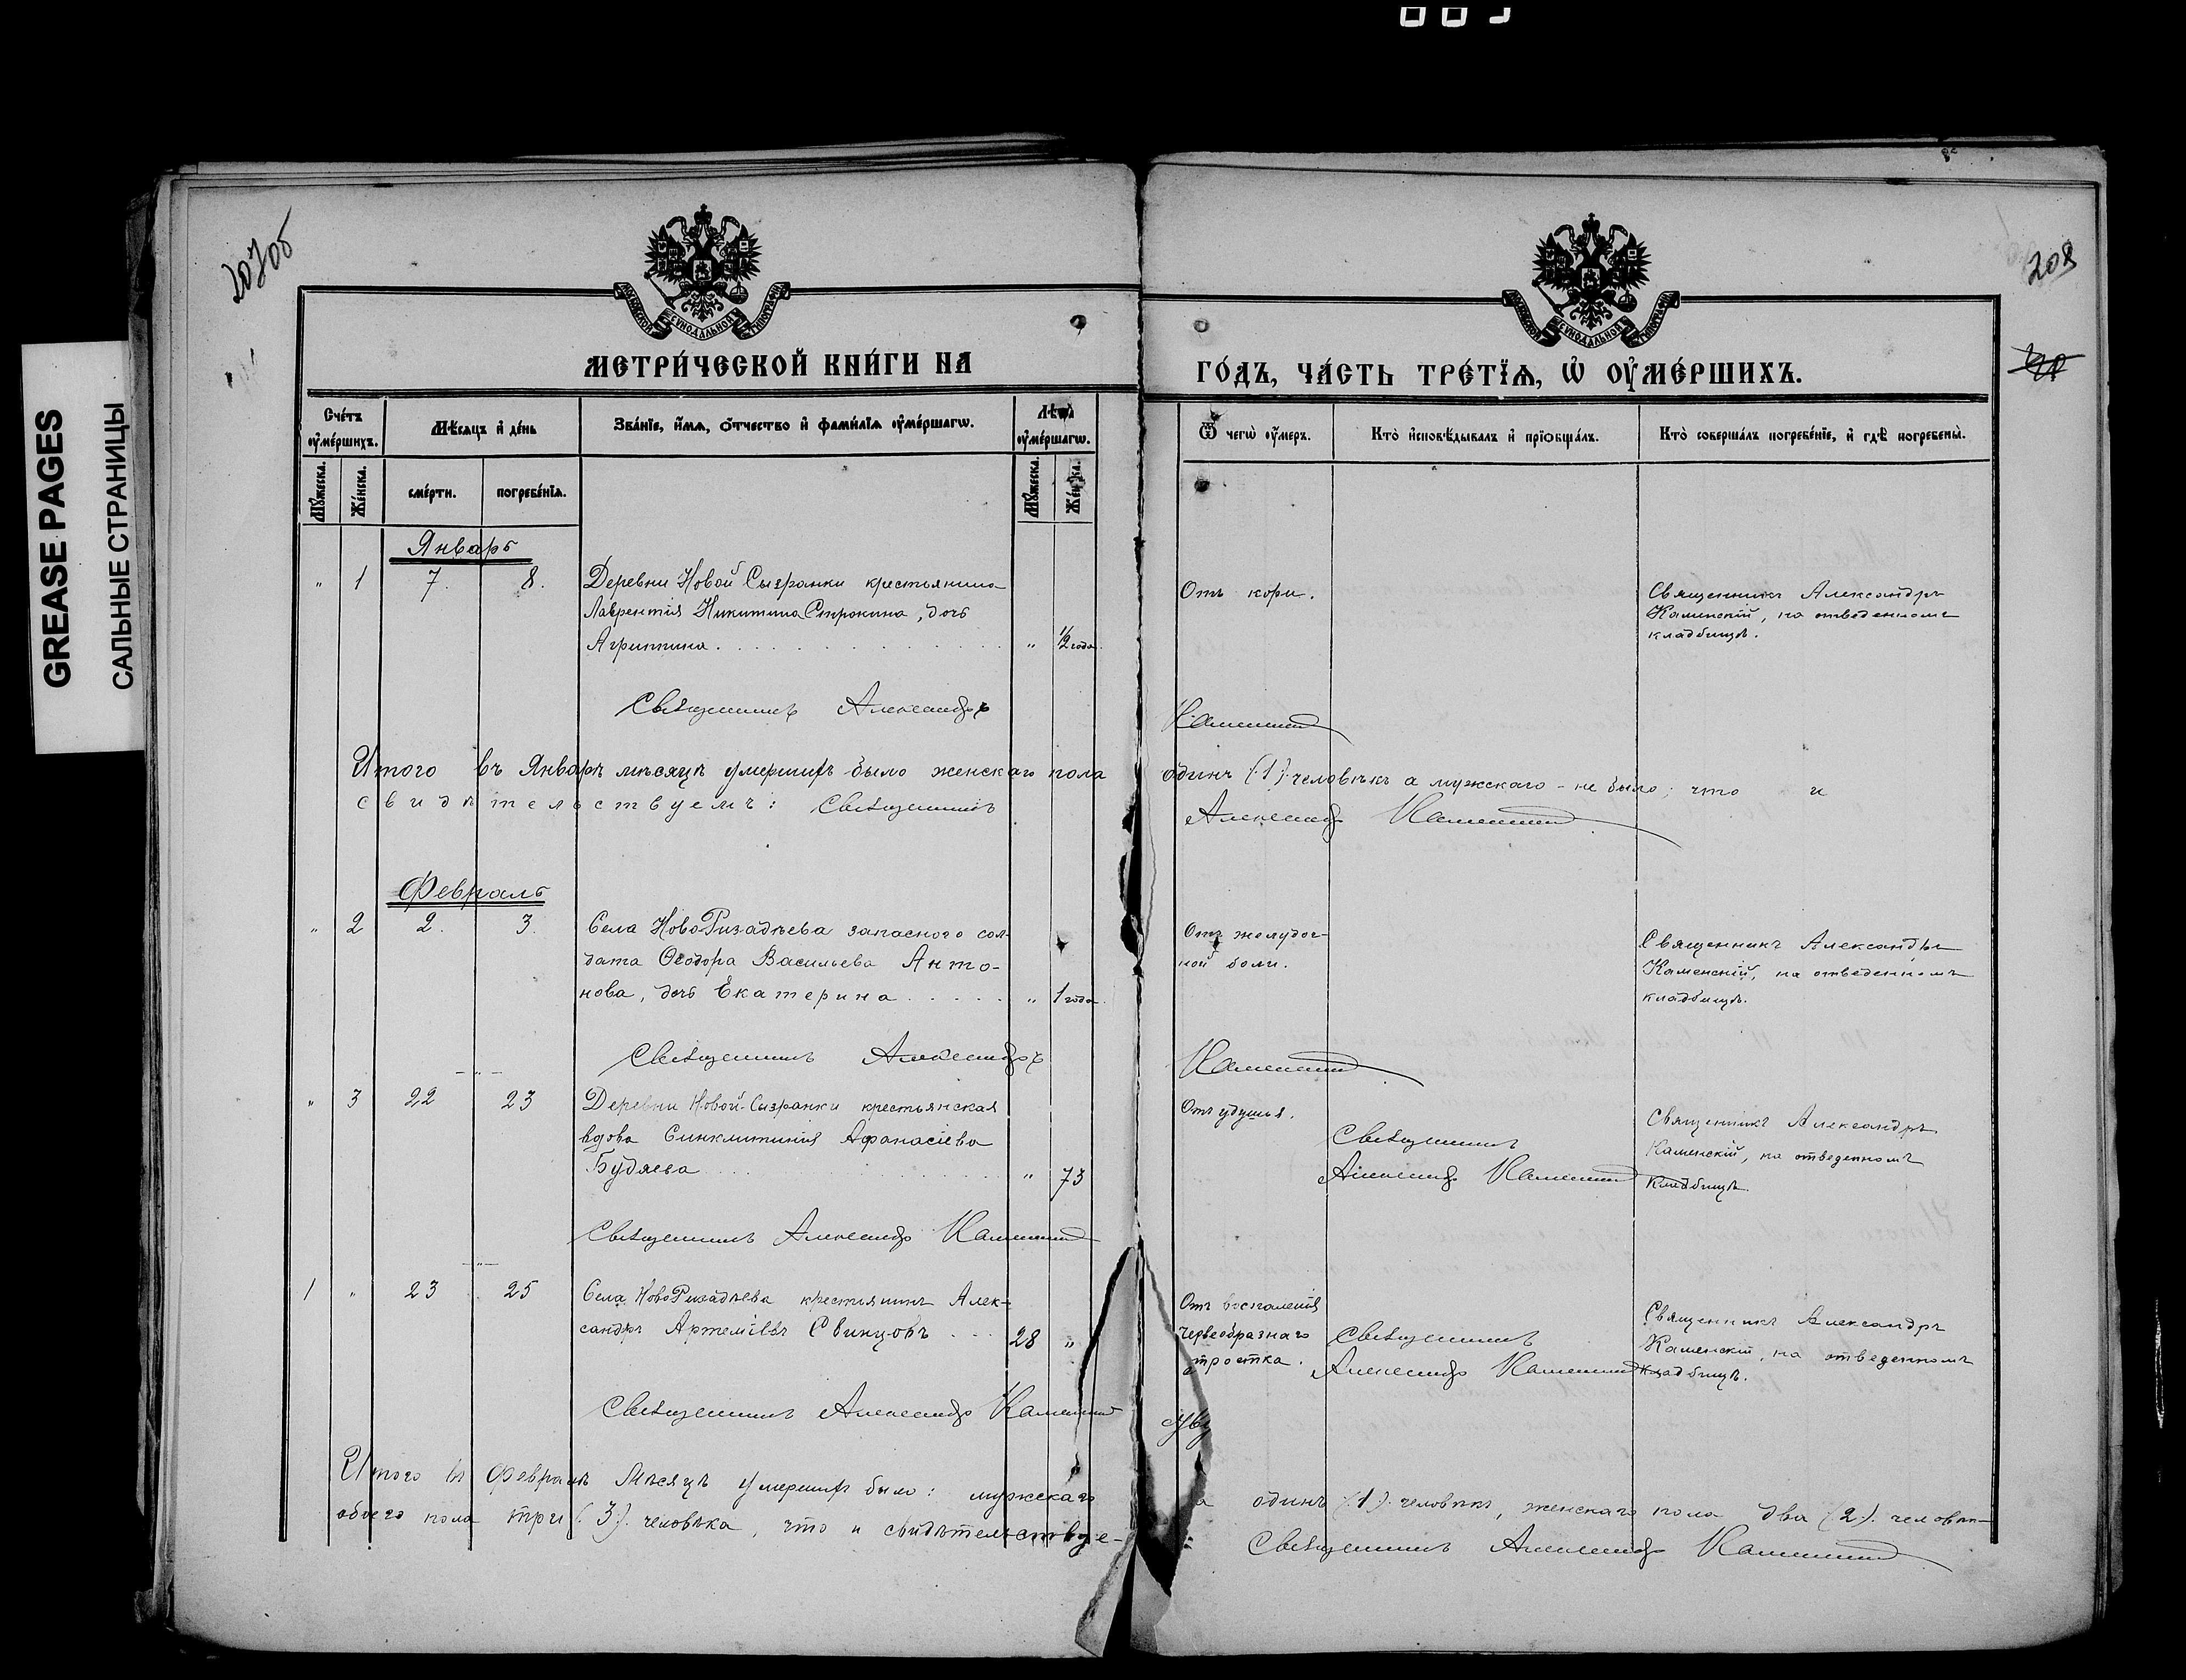 GREASE PAGES
САЛЬНЫЕ СТРАНИЦЫ
207об
208
МЕТРИ́ЧЕСКОЙ КНИ́ГИ НА
ГО́ДЪ, ЧА́СТЬ ТРЕ́ТЇѦ, Ѡ҆ ОУ҆МЕ́РШИХЪ.
Сче́тъ оу҆ме́ршихъ.
Мѣ́сяцъ и҆ де́нь
Зва́нїе, и҆́мѧ, ѻ҆́тчество и҆ фами́лїѧ оу҆ме́ршагѡ.
Лѣта̀ оу҆ме́ршагѡ.
Ѿ чегѡ̀ оу҆́меръ.
Кто̀ и҆сповѣ́дывалъ и҆ прїѡбща́лъ.
Кто̀ соверша́лъ погребе́нїе, и҆ гдѣ̀ погребены̀.
Мꙋ́жеска.
Же́нска.
сме́рти.
погребе́нїѧ.
Мꙋ́жеска.
Же́нска.
Январь
" 1 7. 8. Деревни Новой Сызранки крестьянина
Лаврентія Никитина Строкина, дочь
Агриппина . . . " 1/2 года.
Отъ кори.
Священникъ Александръ
Каменскій, на отведенномъ
кладбищѣ.
Священникъ Александръ Каменскій
Итого въ Январѣ мѣсяцѣ умершихъ было женскаго пола одинъ (.1.) человѣкъ а мужскаго - не было; что и
свидѣтельствуемъ: Священникъ Александръ Каменскій
Февраль
" 2 2. 3. Села НовоРизадѣева запасного сол-
дата Ѳеодора Васильева Анто-
нова, дочь Екатерина . . . . . " 1 года.
Отъ желудоч-
ной боли.
Священникъ Александръ
Каменскій, на отведенномъ
кладбищѣ.
Священникъ Александръ Каменскій
" 3 22 23 Деревни Новой-Сызранки крестьянская
вдова Синклитикія Афанасіева
Будяева . . . " 73
Отъ удушья.
Священникъ
Александръ Каменскій
Священникъ Александръ
Каменскій, на отведенномъ
кладбищѣ
Священникъ Александръ Каменскій
1 " 23 25 Села НовоРизадѣева крестьянинъ Алек-
сандръ Артеміевъ Свинцовъ . . . 28 "
Отъ воспаленія
червеобразнаго
отростка.
Священникъ
Александръ Каменскій
Священникъ Александръ
Каменскій, на отведенномъ
кладбищѣ.
Священникъ Александръ Каменскій
Итого въ Февралѣ мѣсяцѣ умершихъ было: мужскаго
одинъ (.1.) человѣкъ, женскаго пола два (.2.). человѣк-
обоего пола три (.3.). человѣка, что и свидѣтельствуе-
Священникъ Александръ Каменскій